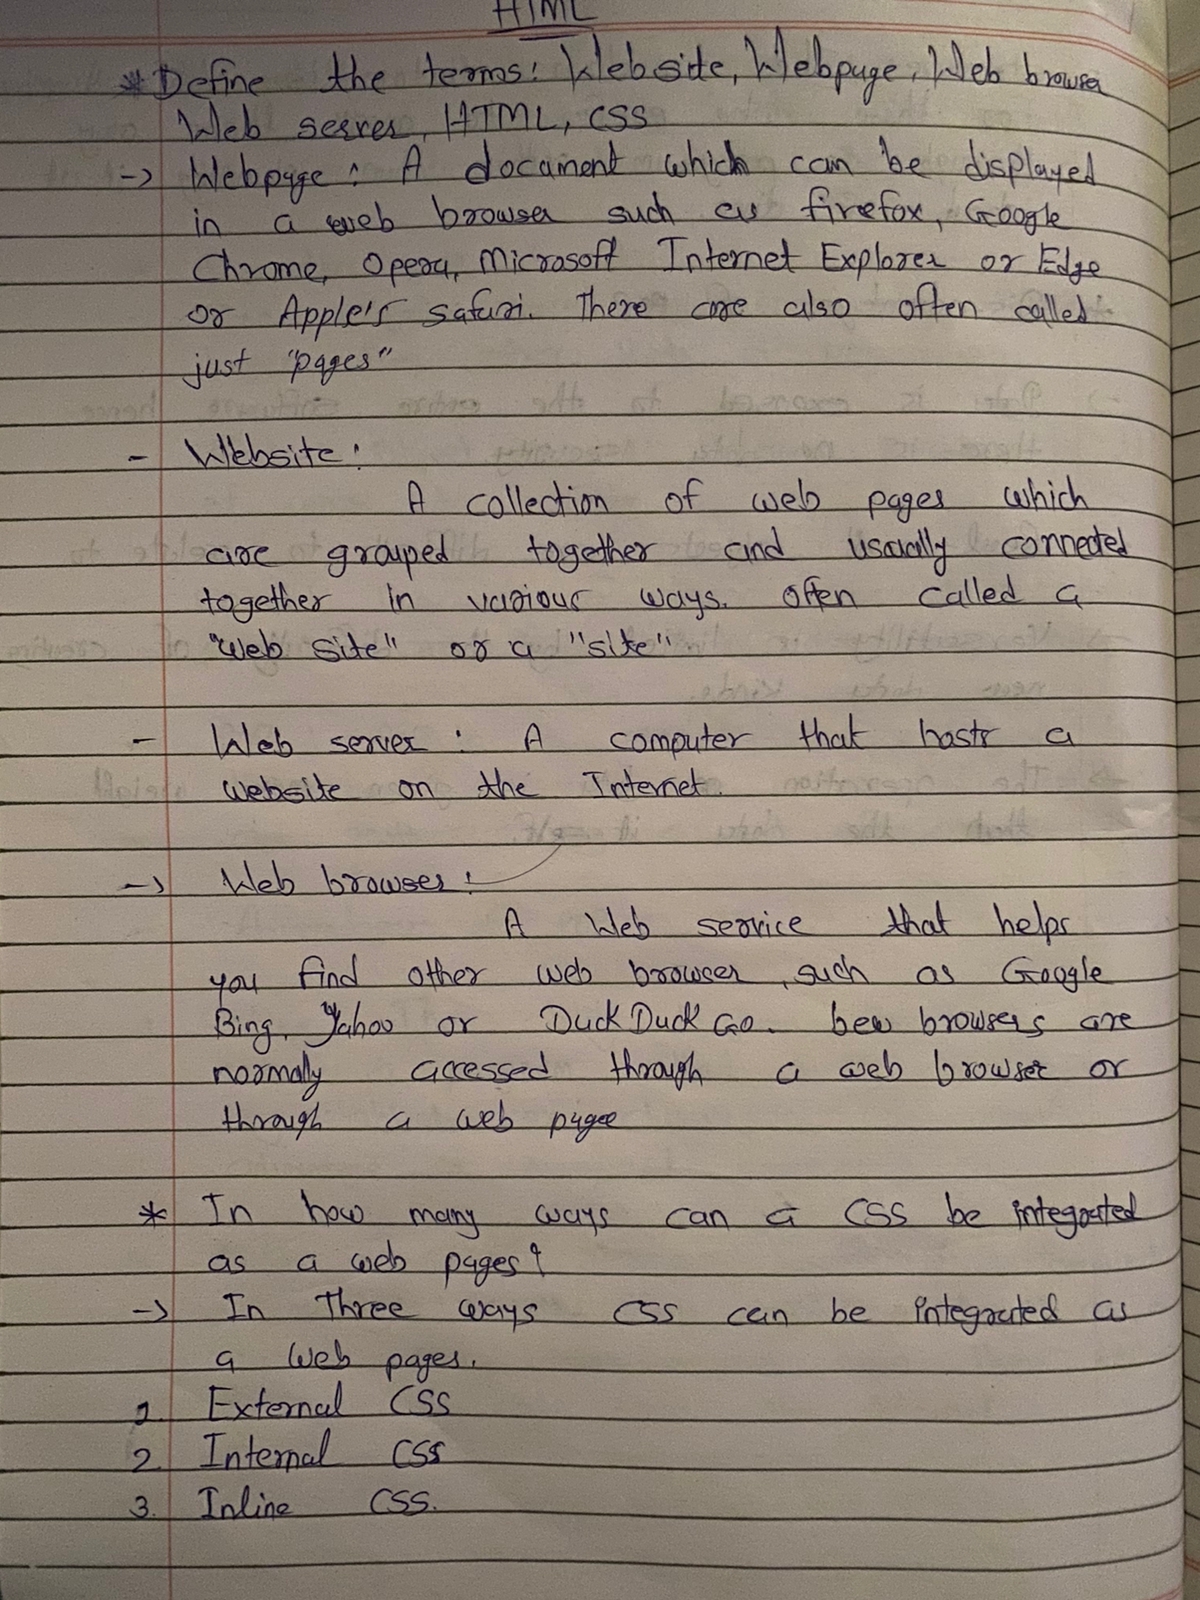 HTML
* Define the terms: Website, Webpage, Web browser
Web server, HTML, CSS
-> Webpage : A document which can be displayed
in a web browser such as firefox, Google
Chrome, Opera, Microsoft Internet Explorer or Edge
or Apple's safari. There are also often called
just "pages"
- Website :
A collection of web pages which
are grouped together and usually connected
together in various ways. Often called a
"Web Site" or a "site"
- Web server : A computer that hosts a
website on the Internet.
-> Web browser :
A Web service that helps
you find other web browser, such as Google
Bing, Yahoo or DuckDuckGo. bew browsers are
normaly accessed through a web browser or
through a web pagee
* In how many ways can a CSS be integrated
as a web pages?
-> In Three ways CSS can be integrated as
a web pages.
1. External CSS
2. Internal CSS
3. Inline CSS.